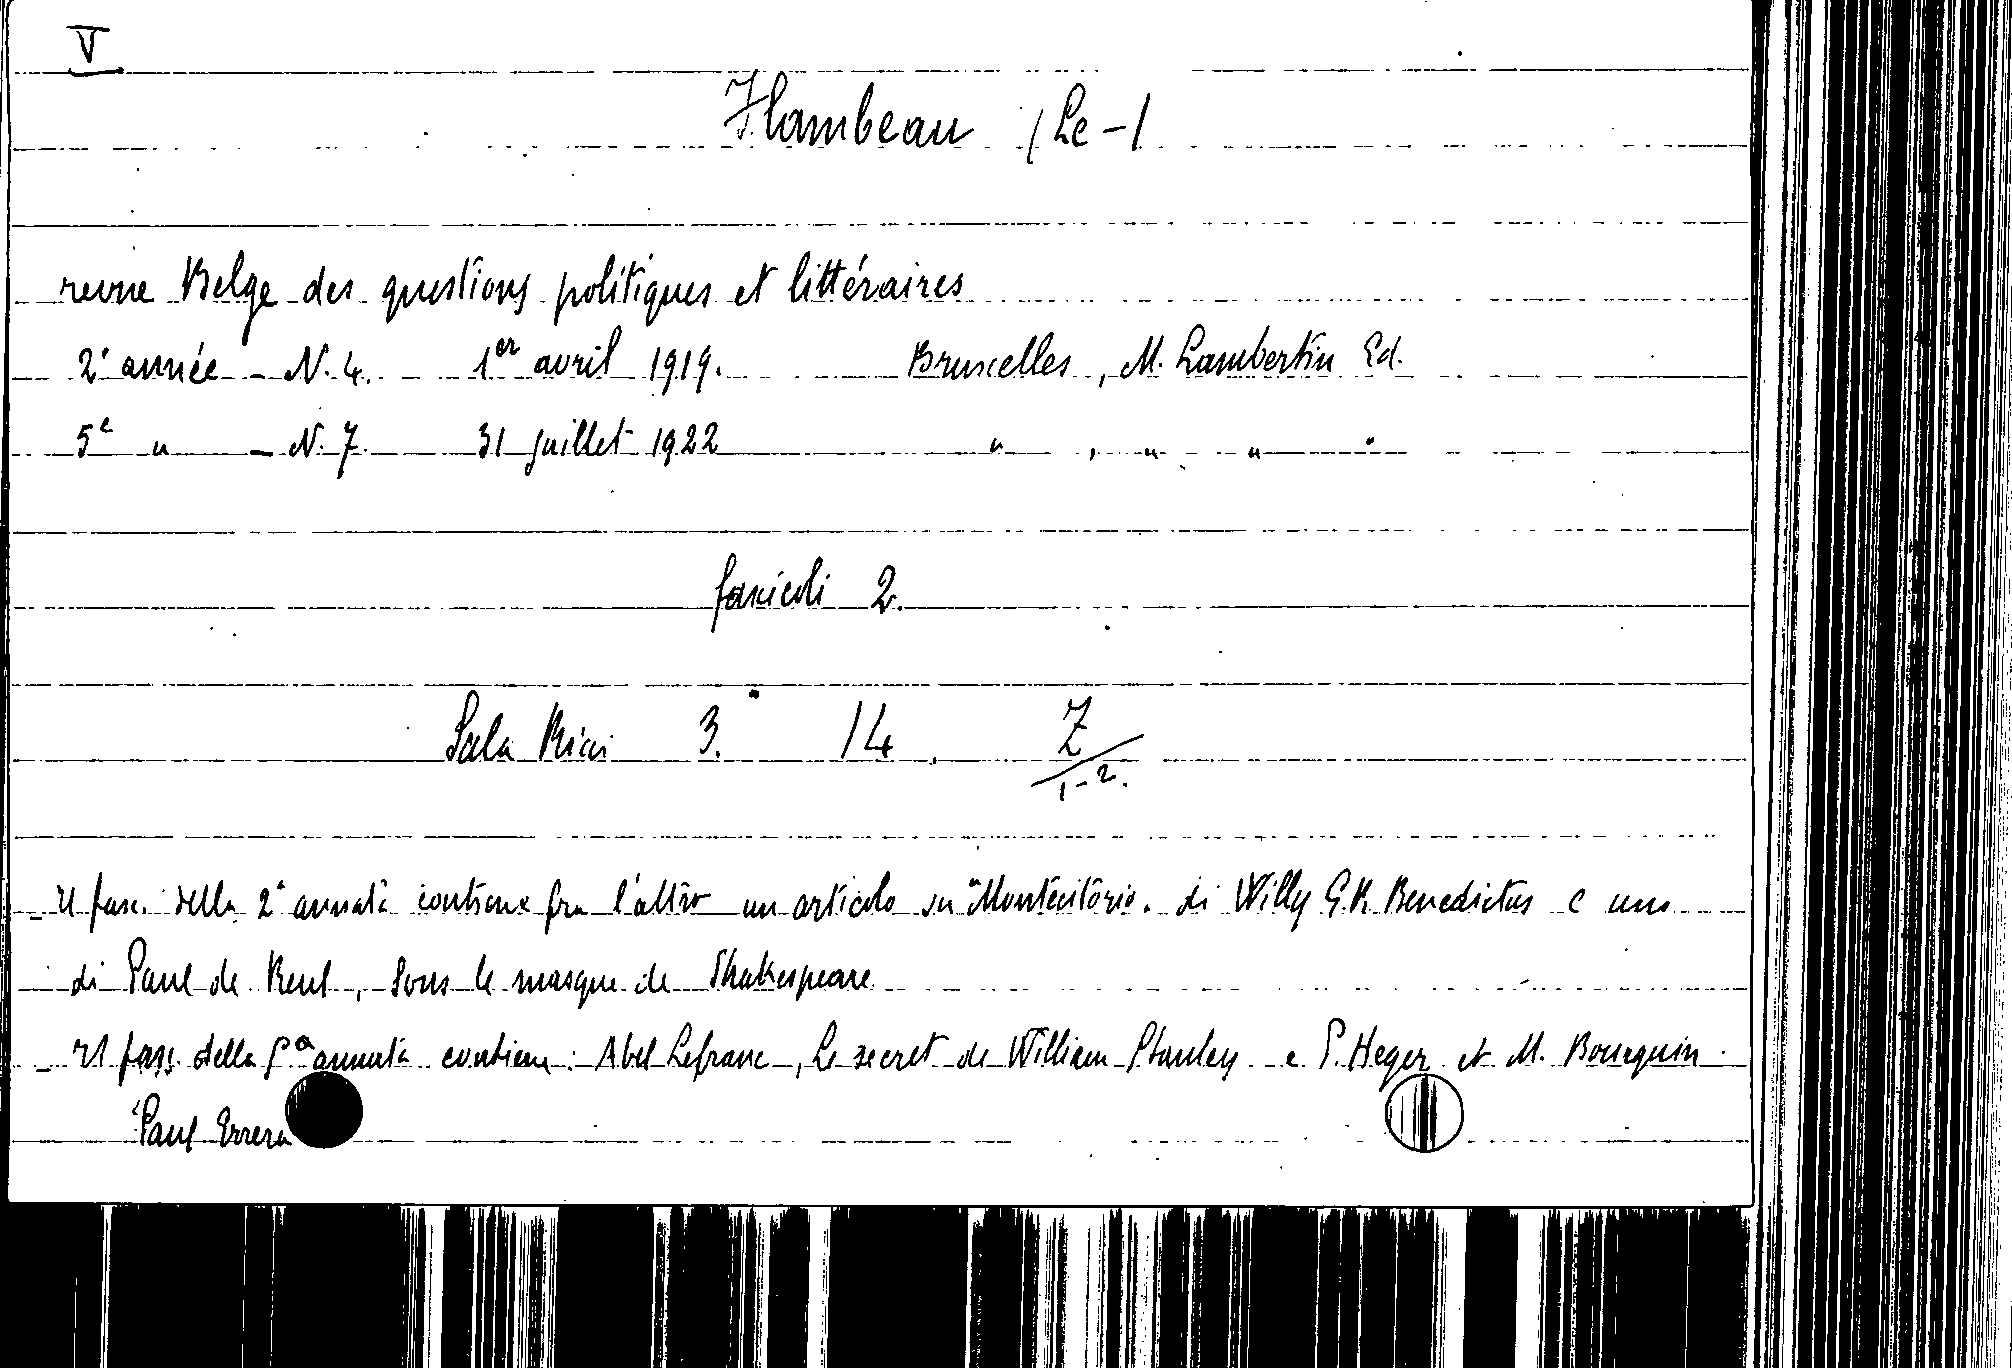 V
Flambeau (Le-)
revue Belge des questions politiques et littéraires
2e année - N. 4. 1er avril 1919. Bruxelles, M. Lambertin Ed.
5e " - N. 7. 31 juillet 1922 " , " " "
fascicoli 2.
Sala Ricci 3. 14. Z
1-2.
- Il fasc. della 2a annata contiene fra l'altro un articolo su "Montecitorio" di Willy G.R. Benedictus e uno
di Paul de Reul, Sous le masque de Shakespeare
- Il fasc. della 5a annata contiene: Abel Lefranc, Le secret de William Stanley e P. Heger et M. Bourquin.
Paul Errera